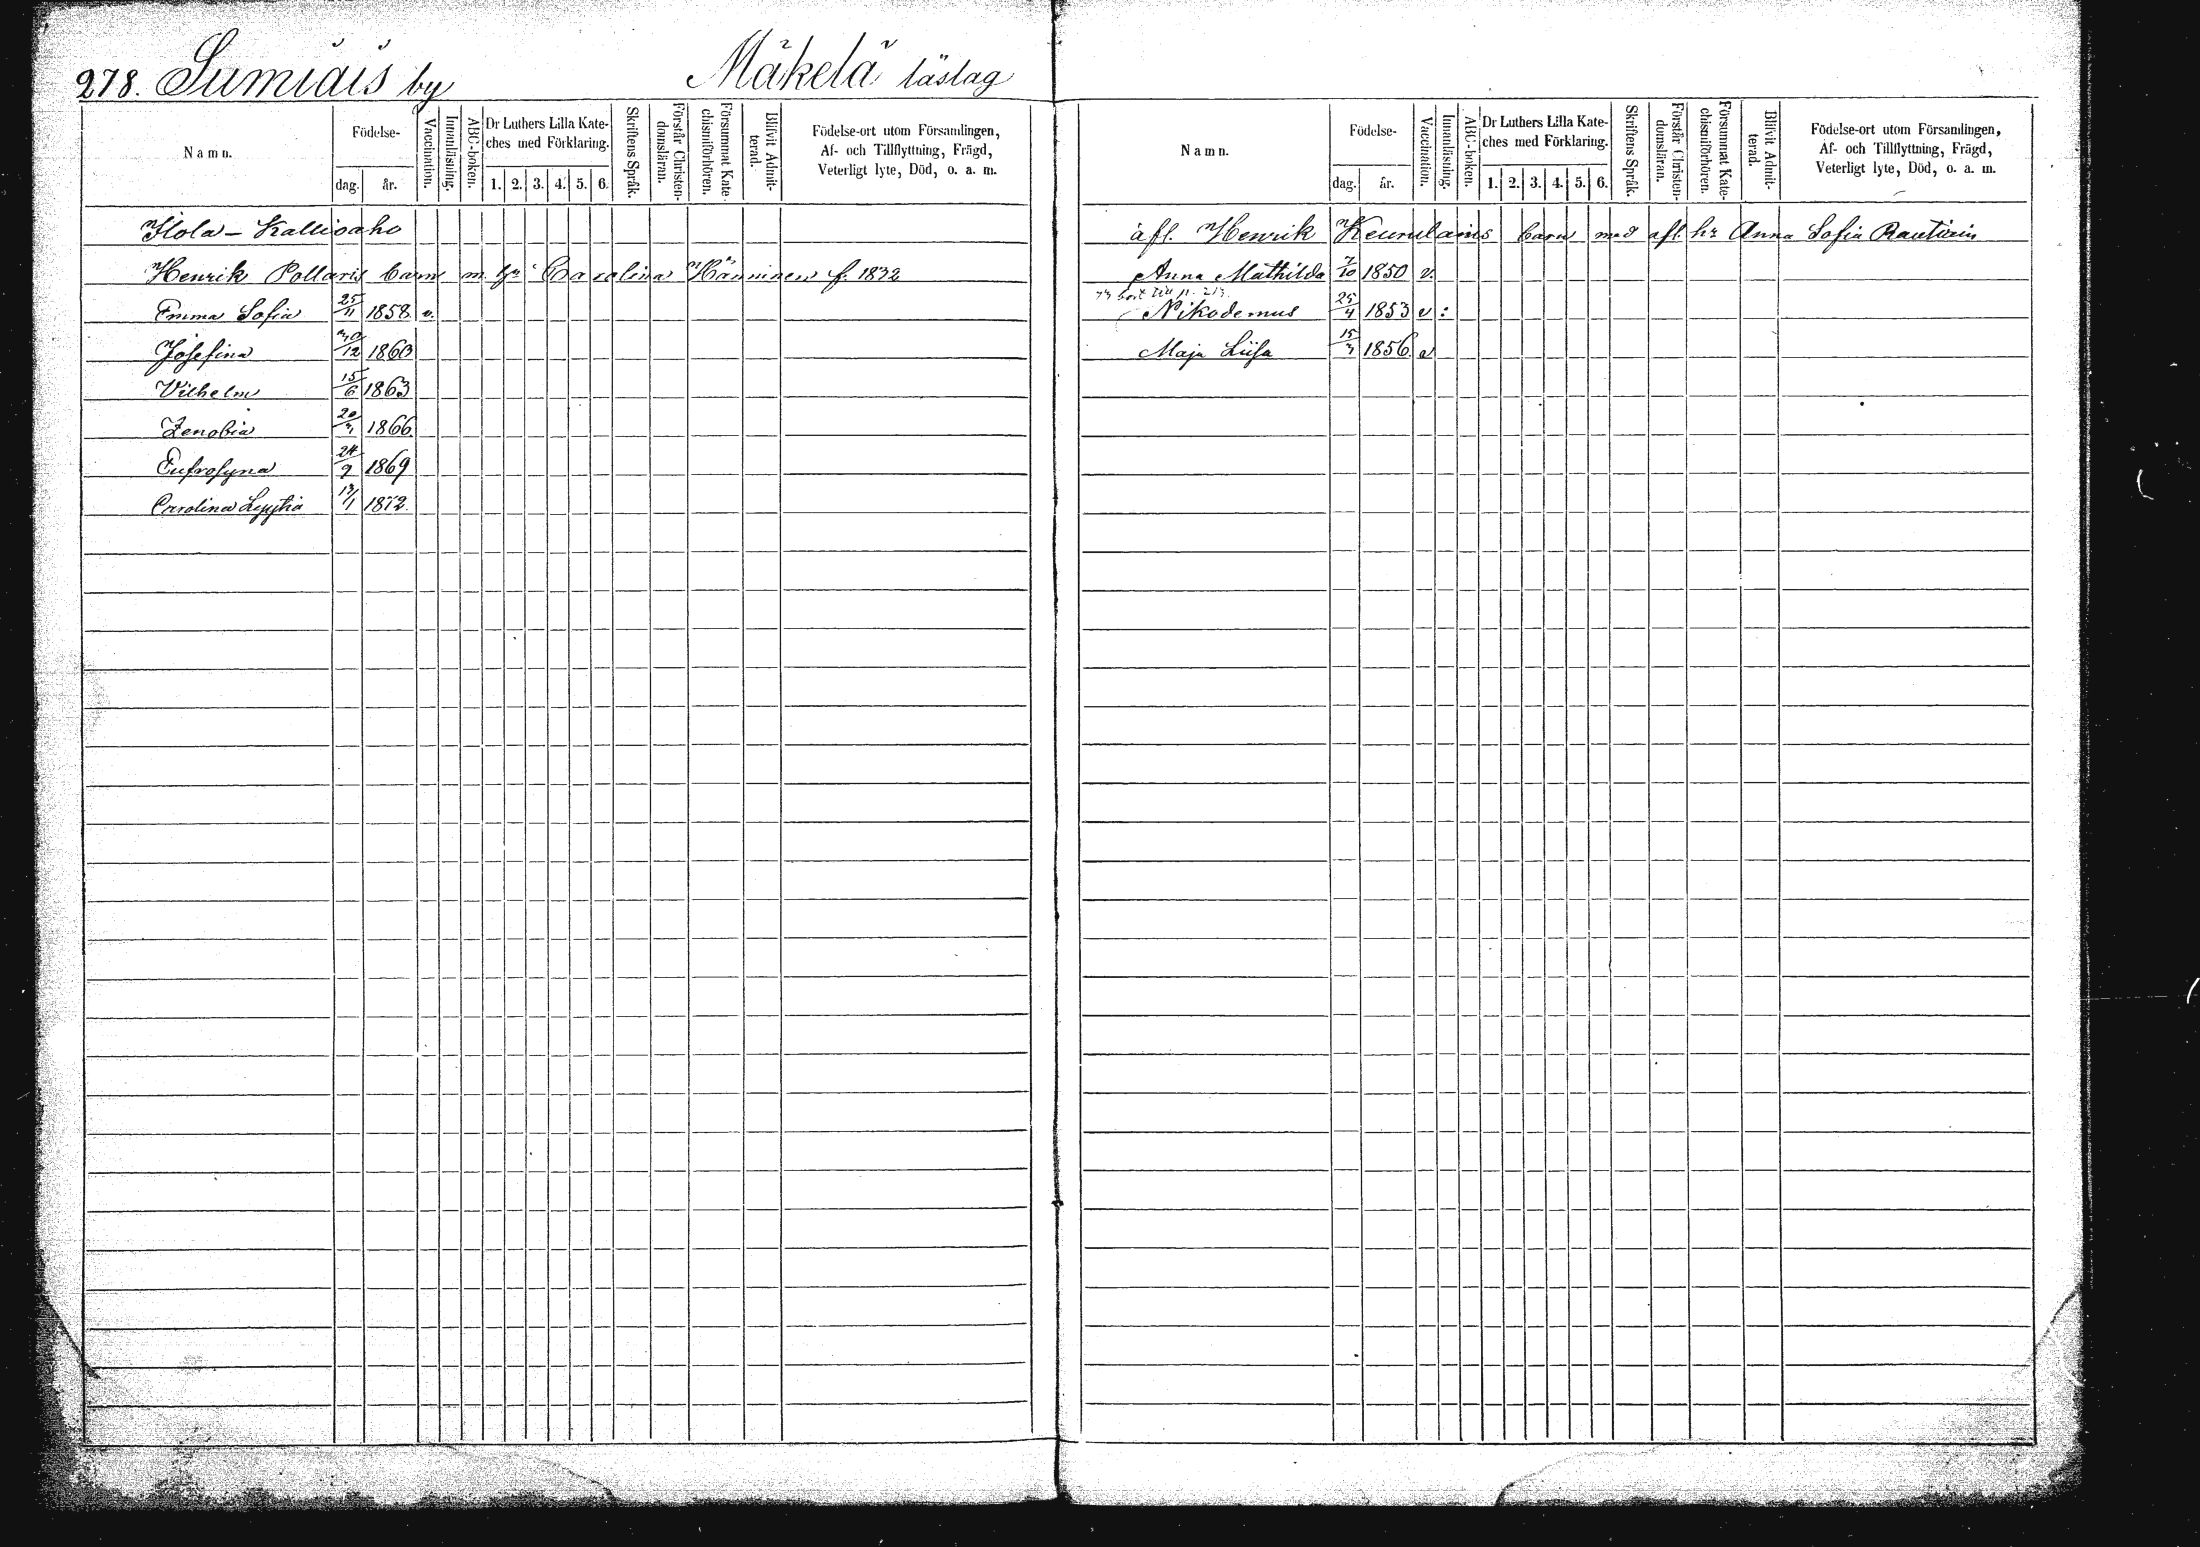 278. Sumiais by Mäkelä läslag
Namn. Födelse- dag. år. Vaccination. Innanläsning. ABC-boken. Dr Luthers Lilla Kateches med Förklaring. 1. 2. 3. 4. 5. 6. Skriftens Språk. Förstår Christendomsläran. Försummat Katechismiförhören. Blifvit Admitterad. Födelse-ort utom Församlingen, Af- och Tillflyttning, Frägd, Veterligt lyte, Död, o. a. m.
Ilola - Kallioaho
Henrik Pollaris barn m. hu Carolina Hänninen f. 1832
Emma Sofia 25/11 1858 v.
Josefina 30/12 1860
Vilhelm 15/6 1863
Zenobia 20/3 1866
Eufrosyna 24/9 1869
Carolina 13/1 1872.
Namn. Födelse- dag. år. Vaccination. Innanläsning. ABC-boken. Dr Luthers Lilla Kateches med Förklaring. 1. 2. 3. 4. 5. 6. Skriftens Språk. Förstår Christendomsläran. Försummat Katechismiförhören. Blifvit Admitterad. Födelse-ort utom Församlingen, Af- och Tillflyttning, Frägd, Veterligt lyte, Död, o. a. m.
afl. Henrik barn med afl. hr Anna Sofia Rautiain
Anna Mathilda 7/10 1850 v.
73 bort till p. 213.
Nikodemus 25/4 1853 v :
Maja Liisa 15/3 1856. v